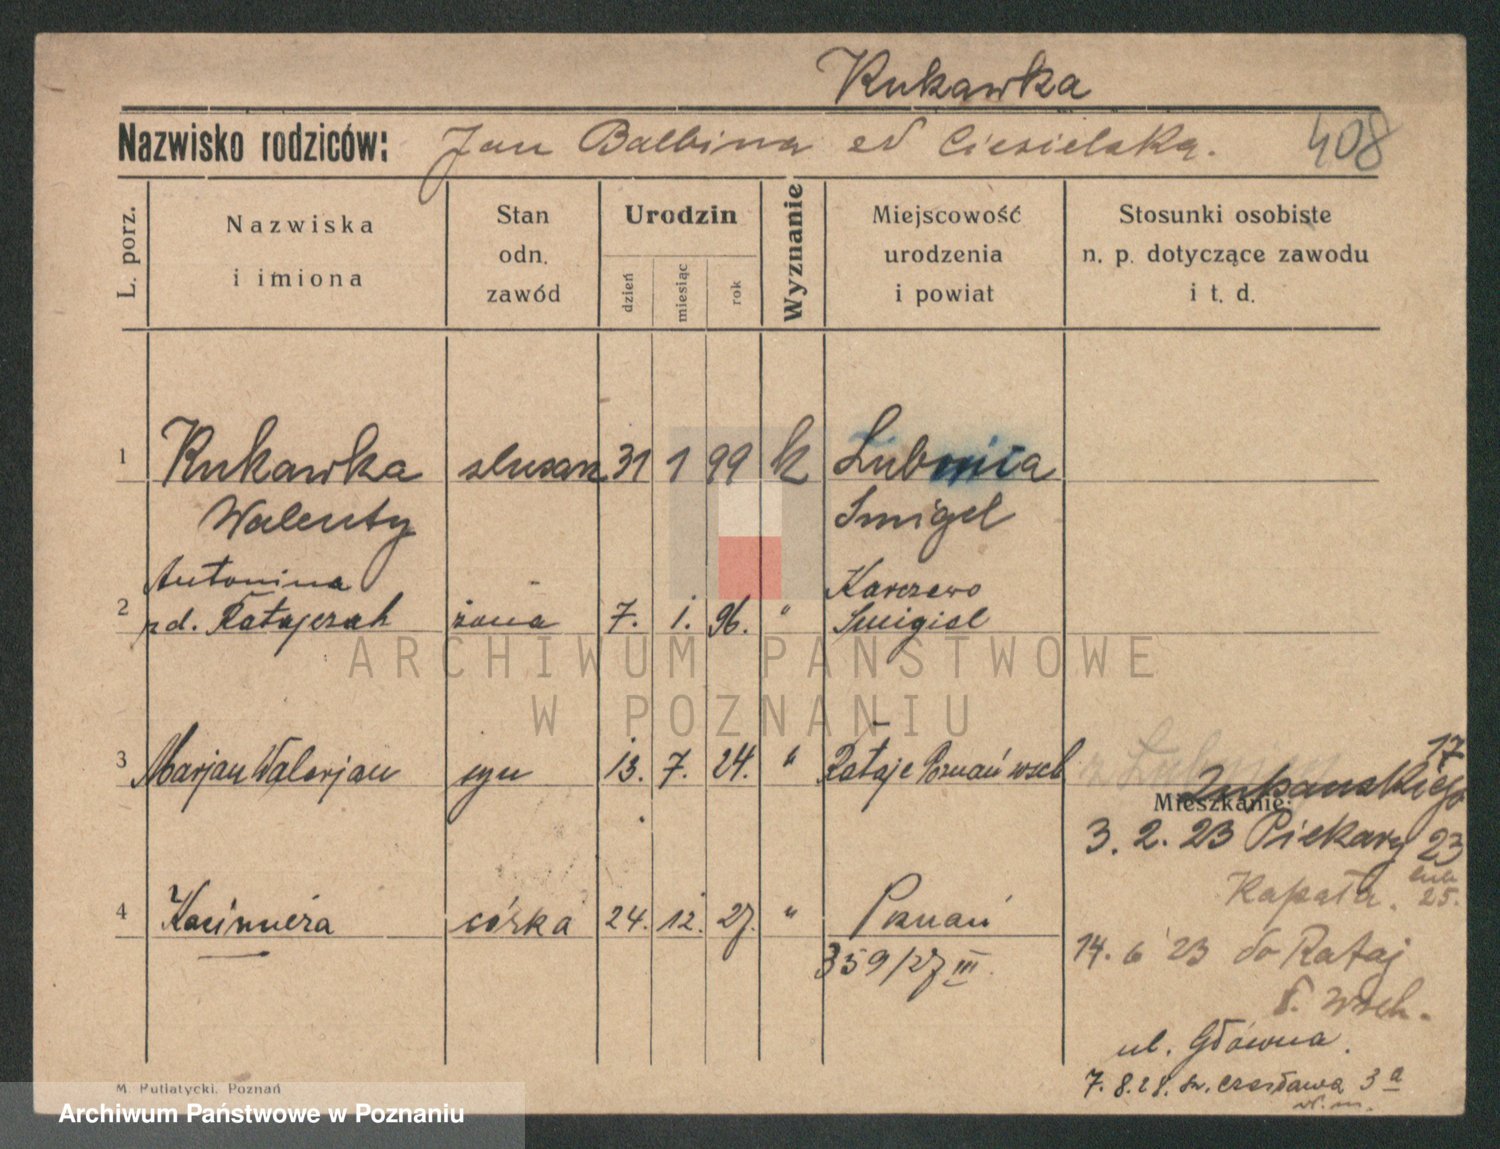 Kukawka
Nazwisko rodziców: Jan Balbina Ciesielska.
408
L. porz.
Nazwiska
i imiona
Stan
odn.
zawód
Urodzin
dzień
miesiąc
rok
Wyznanie
Miejscowość
urodzenia
i powiat
Stosunki osobiste
n. p. dotyczące zawodu
i t. d.
1 Kukawka 31 1 99 k
Walenty Smigel
Antonina Karczewo
2 Ratajczak żona 7. 1. 96. " Smigiel
3 Marjan Walerjan syn 13. 7. 24. " Rataje Poznań wsch
17
Mieszkanie:
3. 2. 23 Piekary 23
25.
4 Kazimiera córka 24. 12. 27. " Poznań
359/27 III
14. 6 23 do Rataj
wsch.
ul. Główna.
7. 8. 28. św. Czesława 3a
M. Putiatycki. Poznań
ARCHIWUM PAŃSTWOWE
W POZNANIU
Archiwum Państwowe w Poznaniu